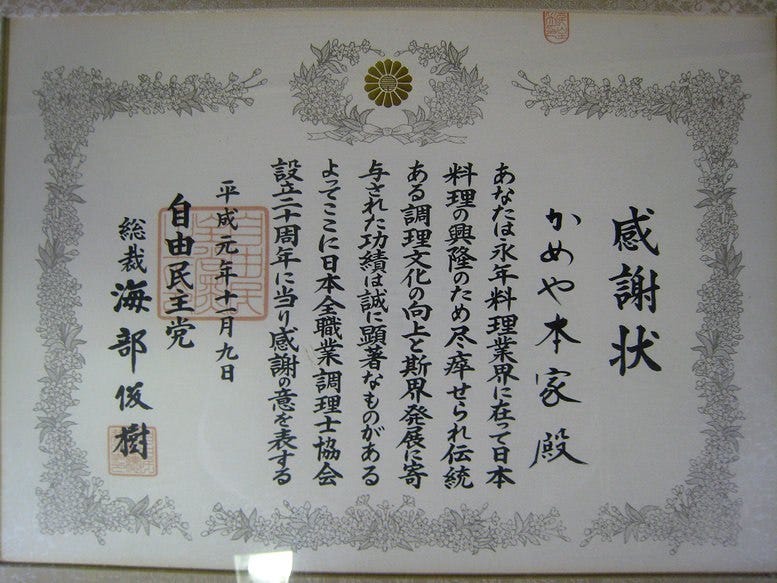 感謝状
かめや本家殿
あなたは永年料理業界に在って日本
料理の興隆のため尽瘁せられ伝統
ある調理文化の向上と斯界発展に寄
与された功績は誠に顕著なものがある
よってここに日本全職業調理士協会
設立二十周年に当り感謝の意を表する
平成元年十一月九日
自由民主党
総裁 海部俊樹